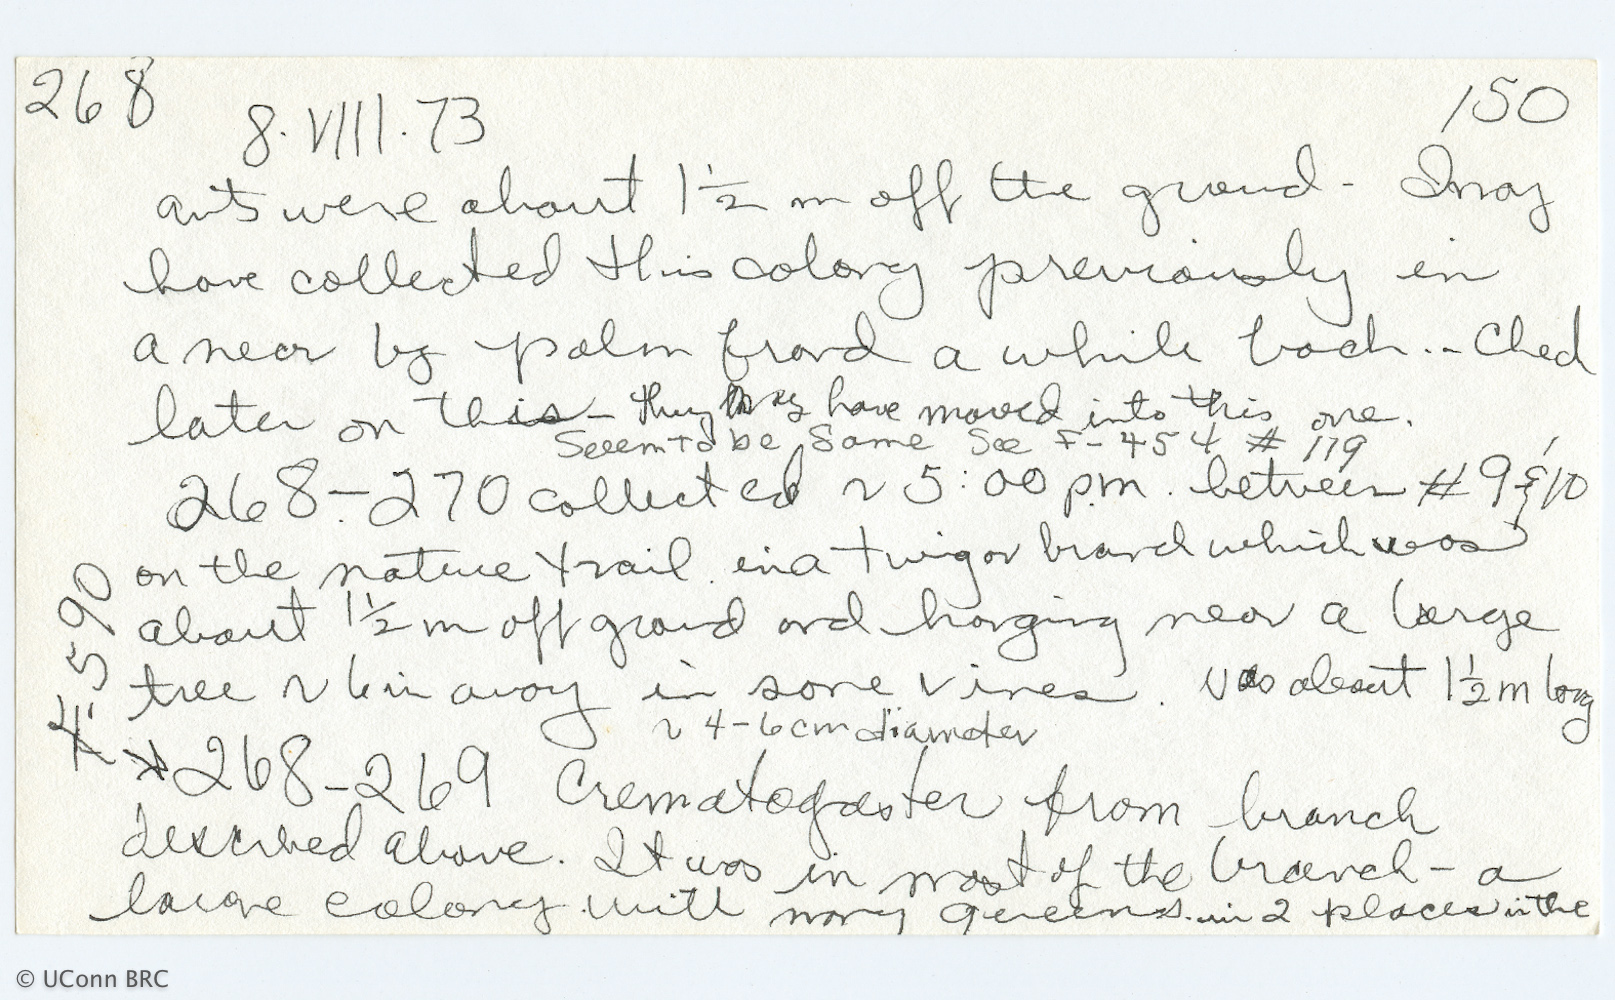 268
150
8.VIII.73
ants were about 1½ m off the ground - I may
have collected this colony previously in
a near by palm frond a while back.. Check
later on this - they may have moved into this one.
Seeem to be Same See F-454 # 119
268-270 collected ~ 5:00 p.m. between # 9 & 10
on the nature trail in a twig or branch which was
about 1½ m off ground and hanging near a large
tree ~ 6 in away in some vines. Was about 1½ m long
~ 4-6 cm diameter
F-590
* 268-269 Crematogaster from branch
described above. It was in most of the branch - a
large colony with many queens. in 2 places in the
© UConn BRC